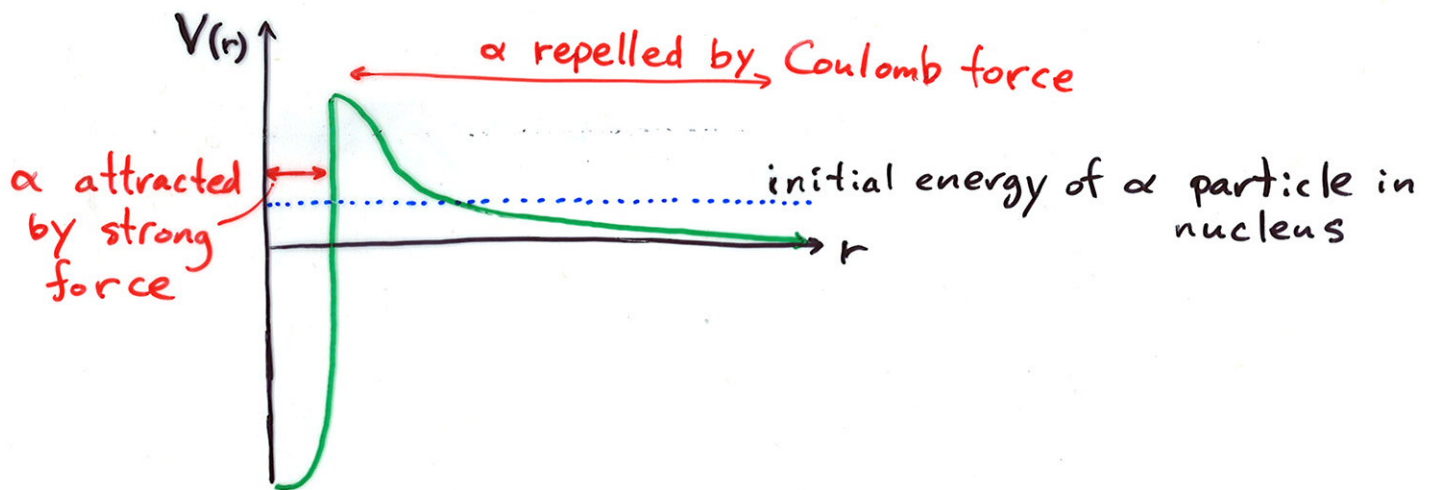 V(r)
α repelled by Coulomb force
α attracted
by strong
force
initial energy of α particle in
nucleus
r